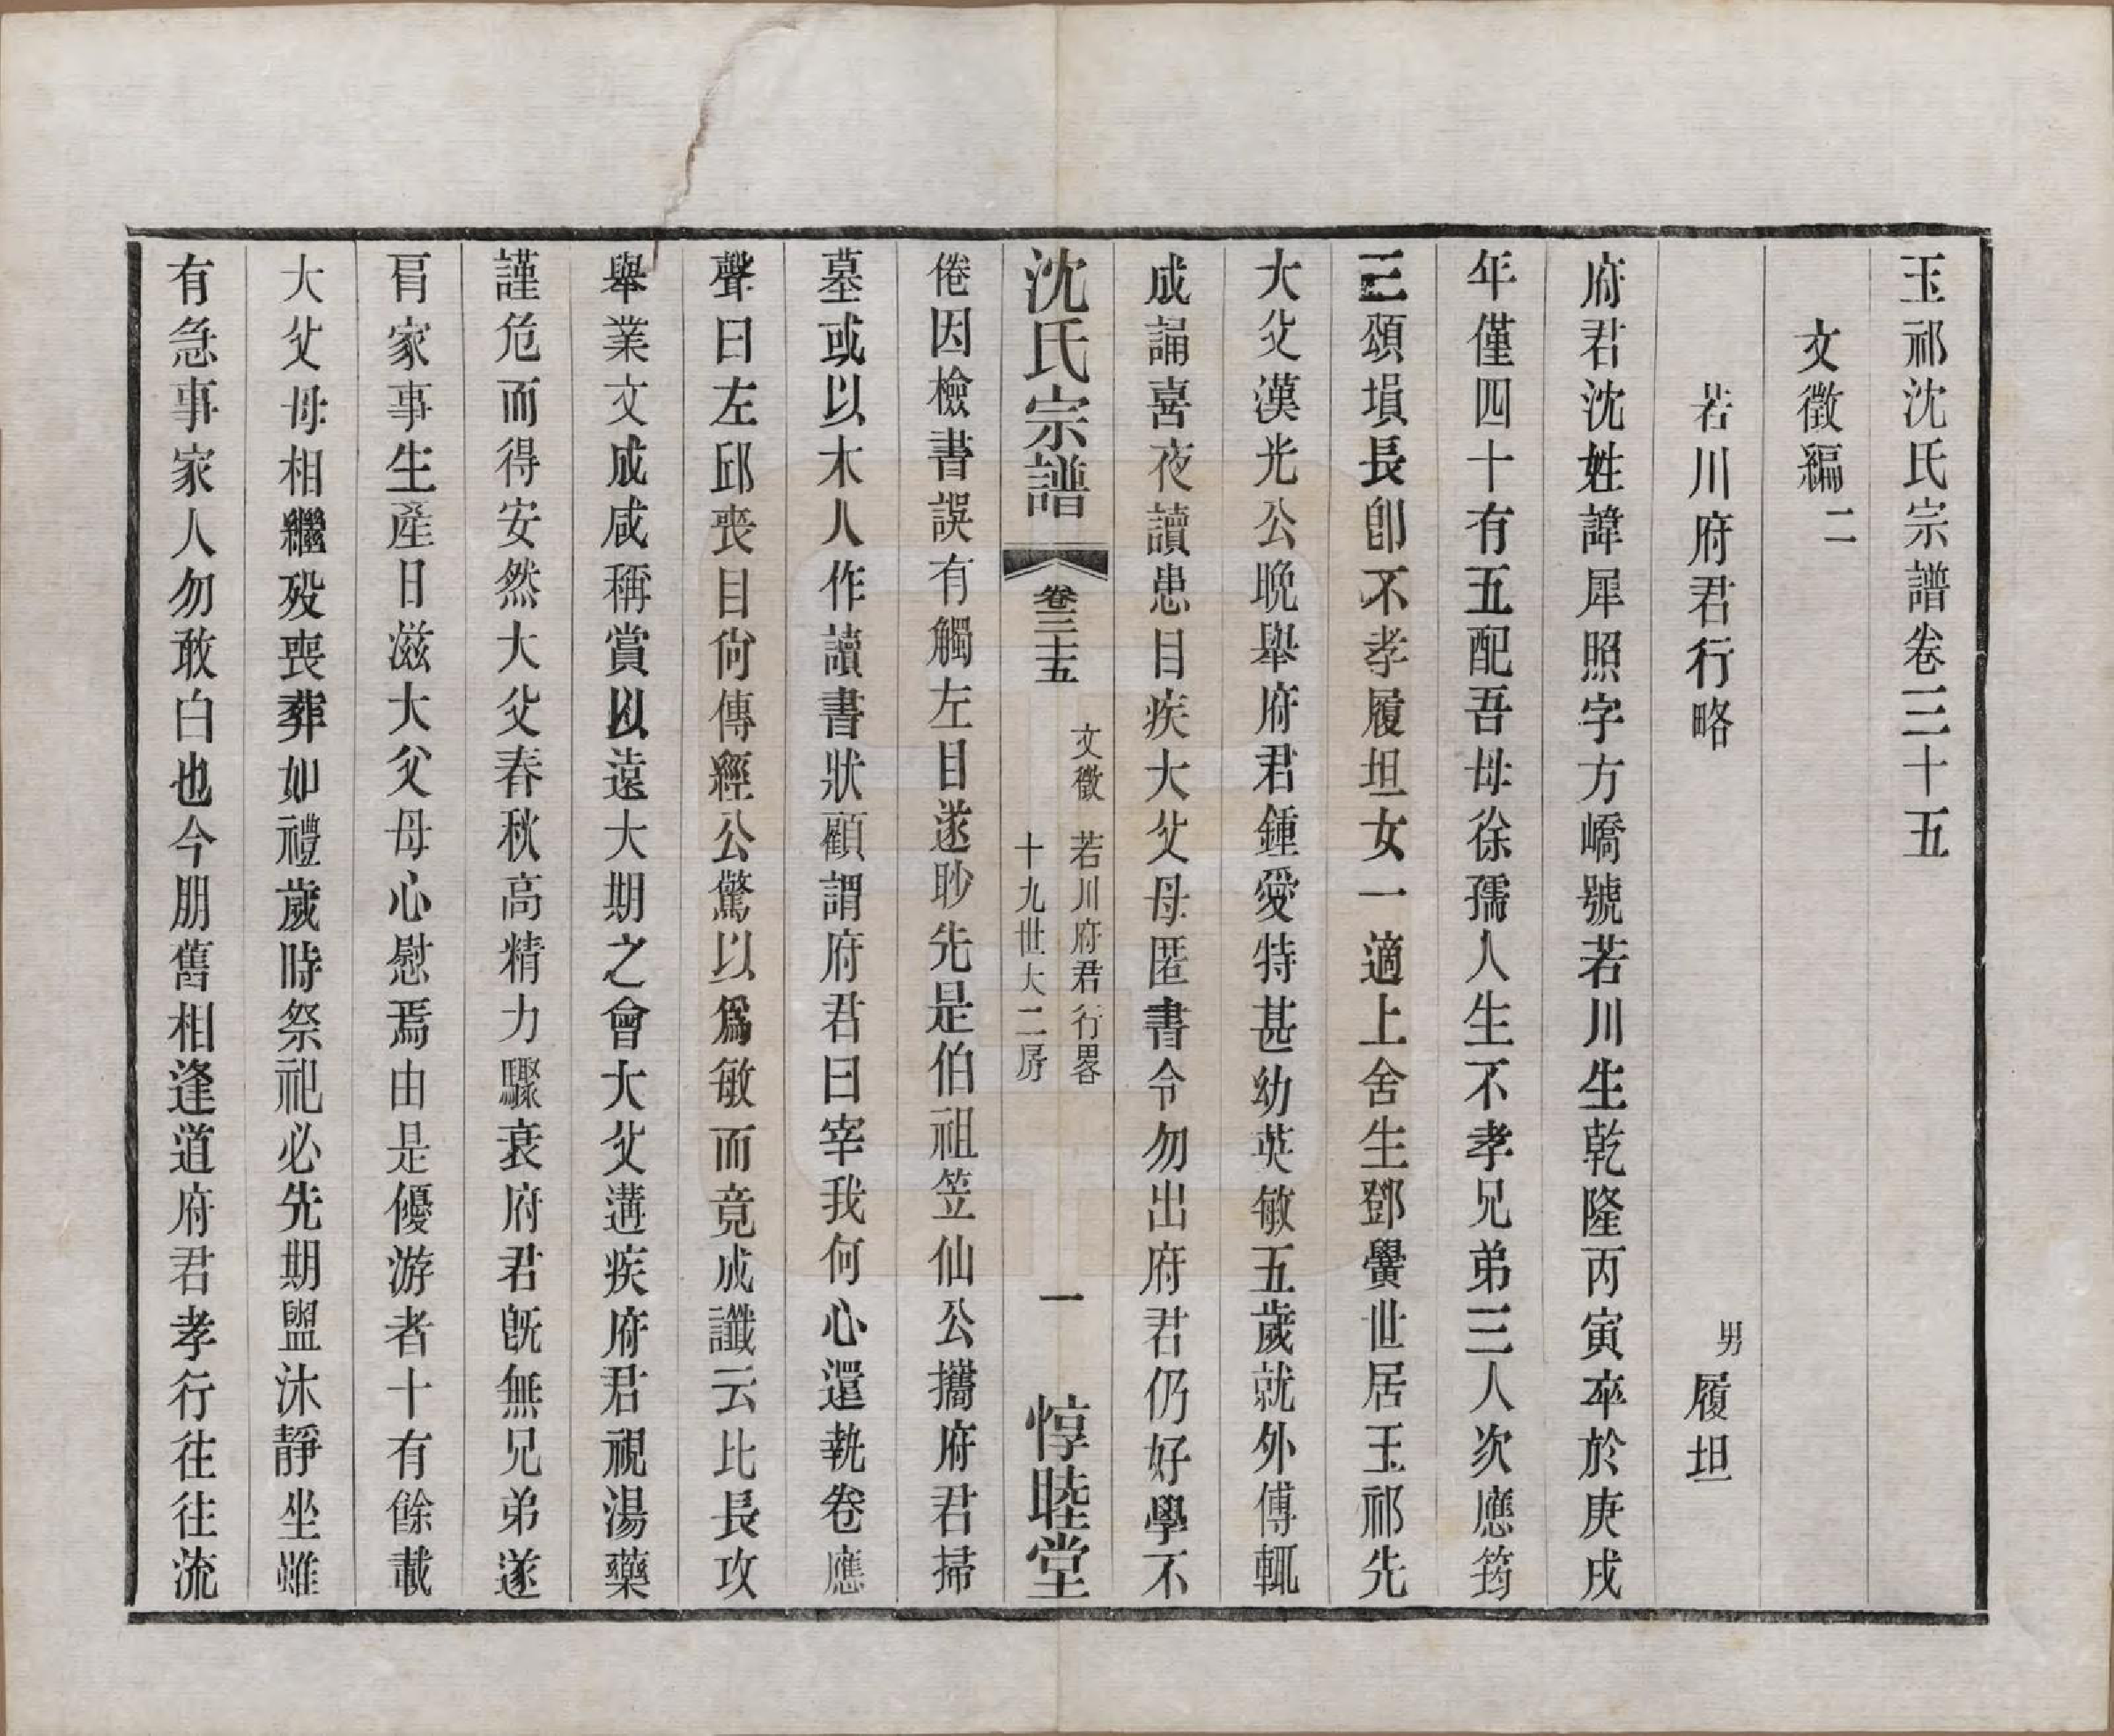 玉祁沈氏宗譜卷三十五
文徵編二
若川府君行略
男履坦
府君沈姓諱犀照字方嶠號若川生乾隆丙寅卒於庚戌
年僅四十有五配吾母徐孺人生不孝兄弟三人次應筠
三頌塤長卽不孝履坦女一適上舍生鄧黌世居玉祁先
大父漢光公晚舉府君鍾愛特甚幼英敏五歲就外傅輒
成誦喜夜讀患目疾大父母匿書令勿出府君仍好學不
沈氏宗譜
卷三十五
文徵 若川府君行畧
十九世大二房
一
惇睦堂
倦因檢書誤有觸左目遂眇先是伯祖笠仙公攜府君掃
墓或以木人作讀書狀顧謂府君曰宰我何心還執卷應
聲曰左邱喪目尙傳經公驚以爲敏而竟成讖云比長攻
舉業文成咸稱賞以遠大期之會大父遘疾府君視湯藥
謹危而得安然大父春秋高精力驟衰府君旣無兄弟遂
肩家事生產日滋大父母心慰焉由是優游者十有餘載
大父母相繼歿喪葬如禮歲時祭祀必先期盥沐靜坐雖
有急事家人勿敢白也今朋舊相逢道府君孝行往往流